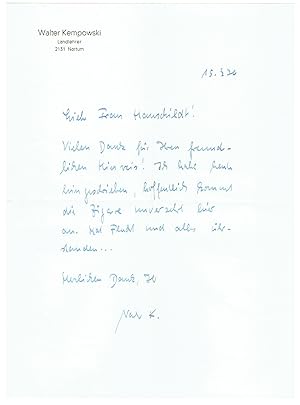 Walter Kempowski
Landlehrer
2131 Nartum
Liebe Frau
Vielen Dank für Ihren freund-
lichen Hinweis! Ich habe
hingeschrieben, hoffentlich kommt
die unversehrt hier
an. und alles über-
standen...
Herzlichen Dank, Ihr
K.